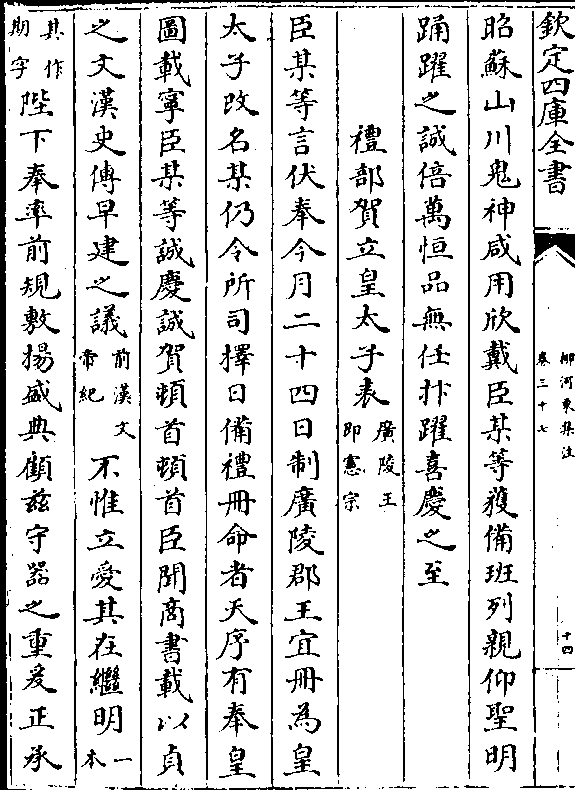 欽定四庫全書
柳河東集注
卷三十七
十四
昭蘇山川鬼神咸用欣戴臣某等獲備班列親仰聖明
踊躍之誠倍萬恒品無任抃躍喜慶之至
禮部賀立皇太子表廣陵王即憲宗
臣某等言伏奉今月二十四日制廣陵郡王宜冊為皇
太子改名某仍令所司擇日備禮冊命者天序有奉皇
圖載寧臣某等誠慶誠賀頓首頓首臣聞商書載以貞
之文漢史傳早建之議前漢文帝紀不惟立愛其在繼明一本
其作期字陛下奉率前規敷揚盛典顧茲守器之重爰正承